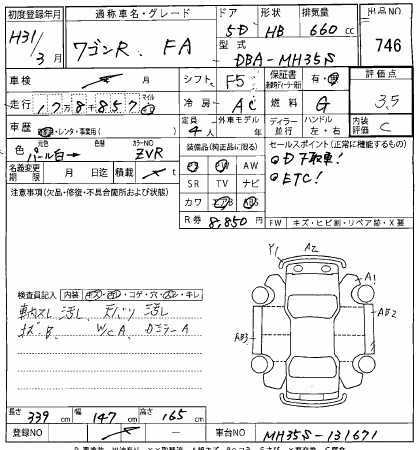 初度登録年月 通称車名・グレード ドア 形状 排気量 出品NO
H31/3月 ワゴンR FA 5D HB 660 cc 746
型式 DBA-MH35S
車検 月 シフト F5 保証書 有・無 評価点
走行 17万8857 マイル km 冷房 AC 燃料 G 3.5
車歴 自家・レンタ・事業用( ) 定員 4人 外車モデル 年 ディーラー 並行 ハンドル 左・右 内装評価 C
色 元色 パール白→ 色替 カラーNO ZVR 装備品(純正品に限る) セールスポイント(正常に機能するもの)
名義変更期限 月 日迄 積載 t PS PW AW ●DF取車!
SR TV ナビ ●ETC!
注意事項(欠品・修復・不具合箇所および状態) カワ エアB ABS
R券 8,850円 FW キズ・ヒビ割・リペア跡・X要
検査員記入 内装 キズ・汚・コゲ・穴・スレ・キレ
車内スレ 汚し 天バリ 汚し
キズB WcA DミラーA
Y1 A2 A1 AB2 AB3
長さ 339 cm 幅 147 cm 高さ 165 cm
登録NO — 車台NO MH35S-131671